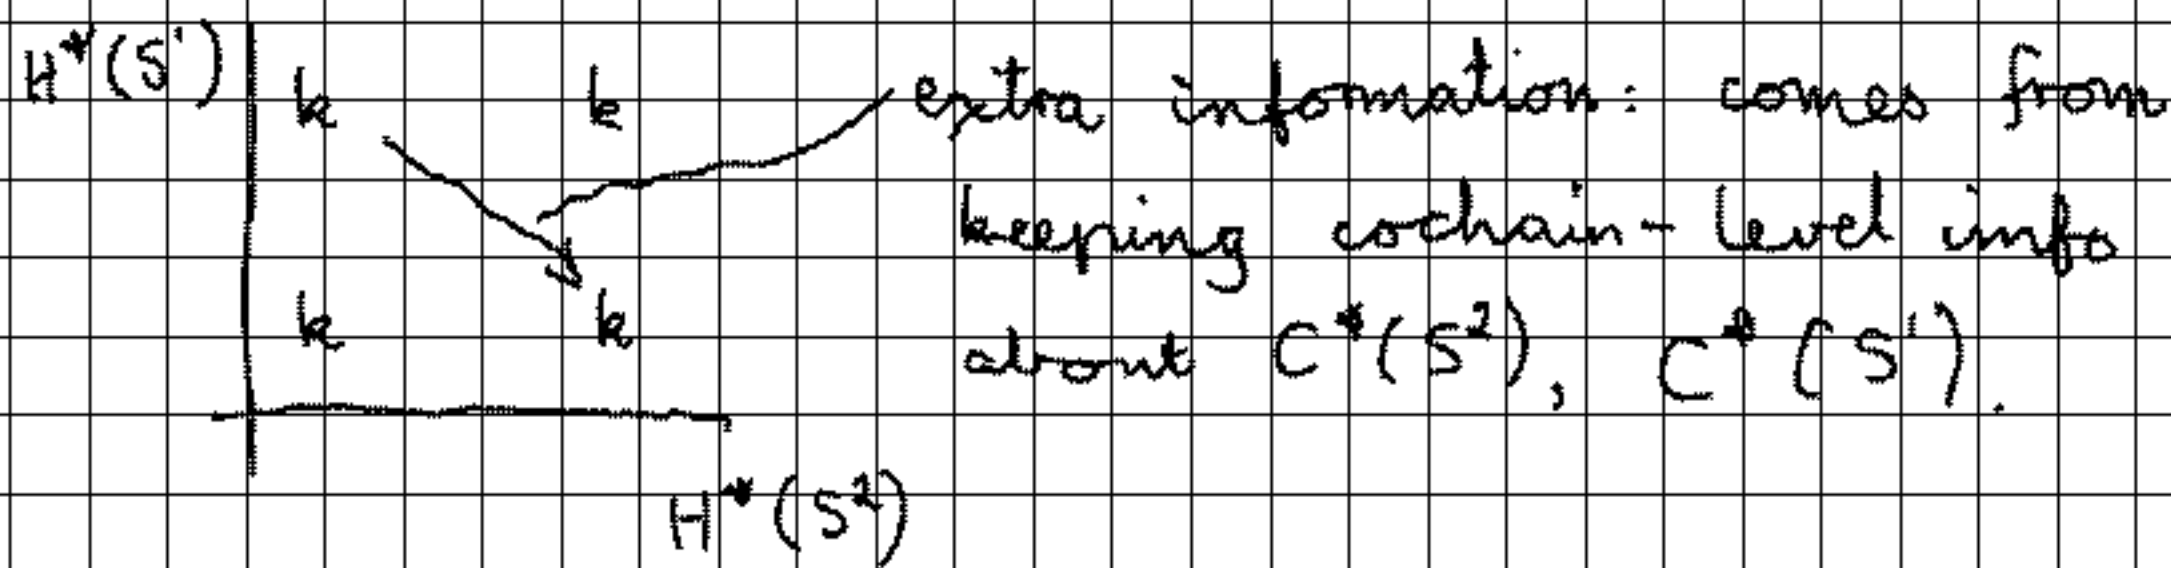 H*(S¹) k k extra infomation: comes from
keeping cochain-level info
k k about C*(S²), C*(S¹).
H*(S²)